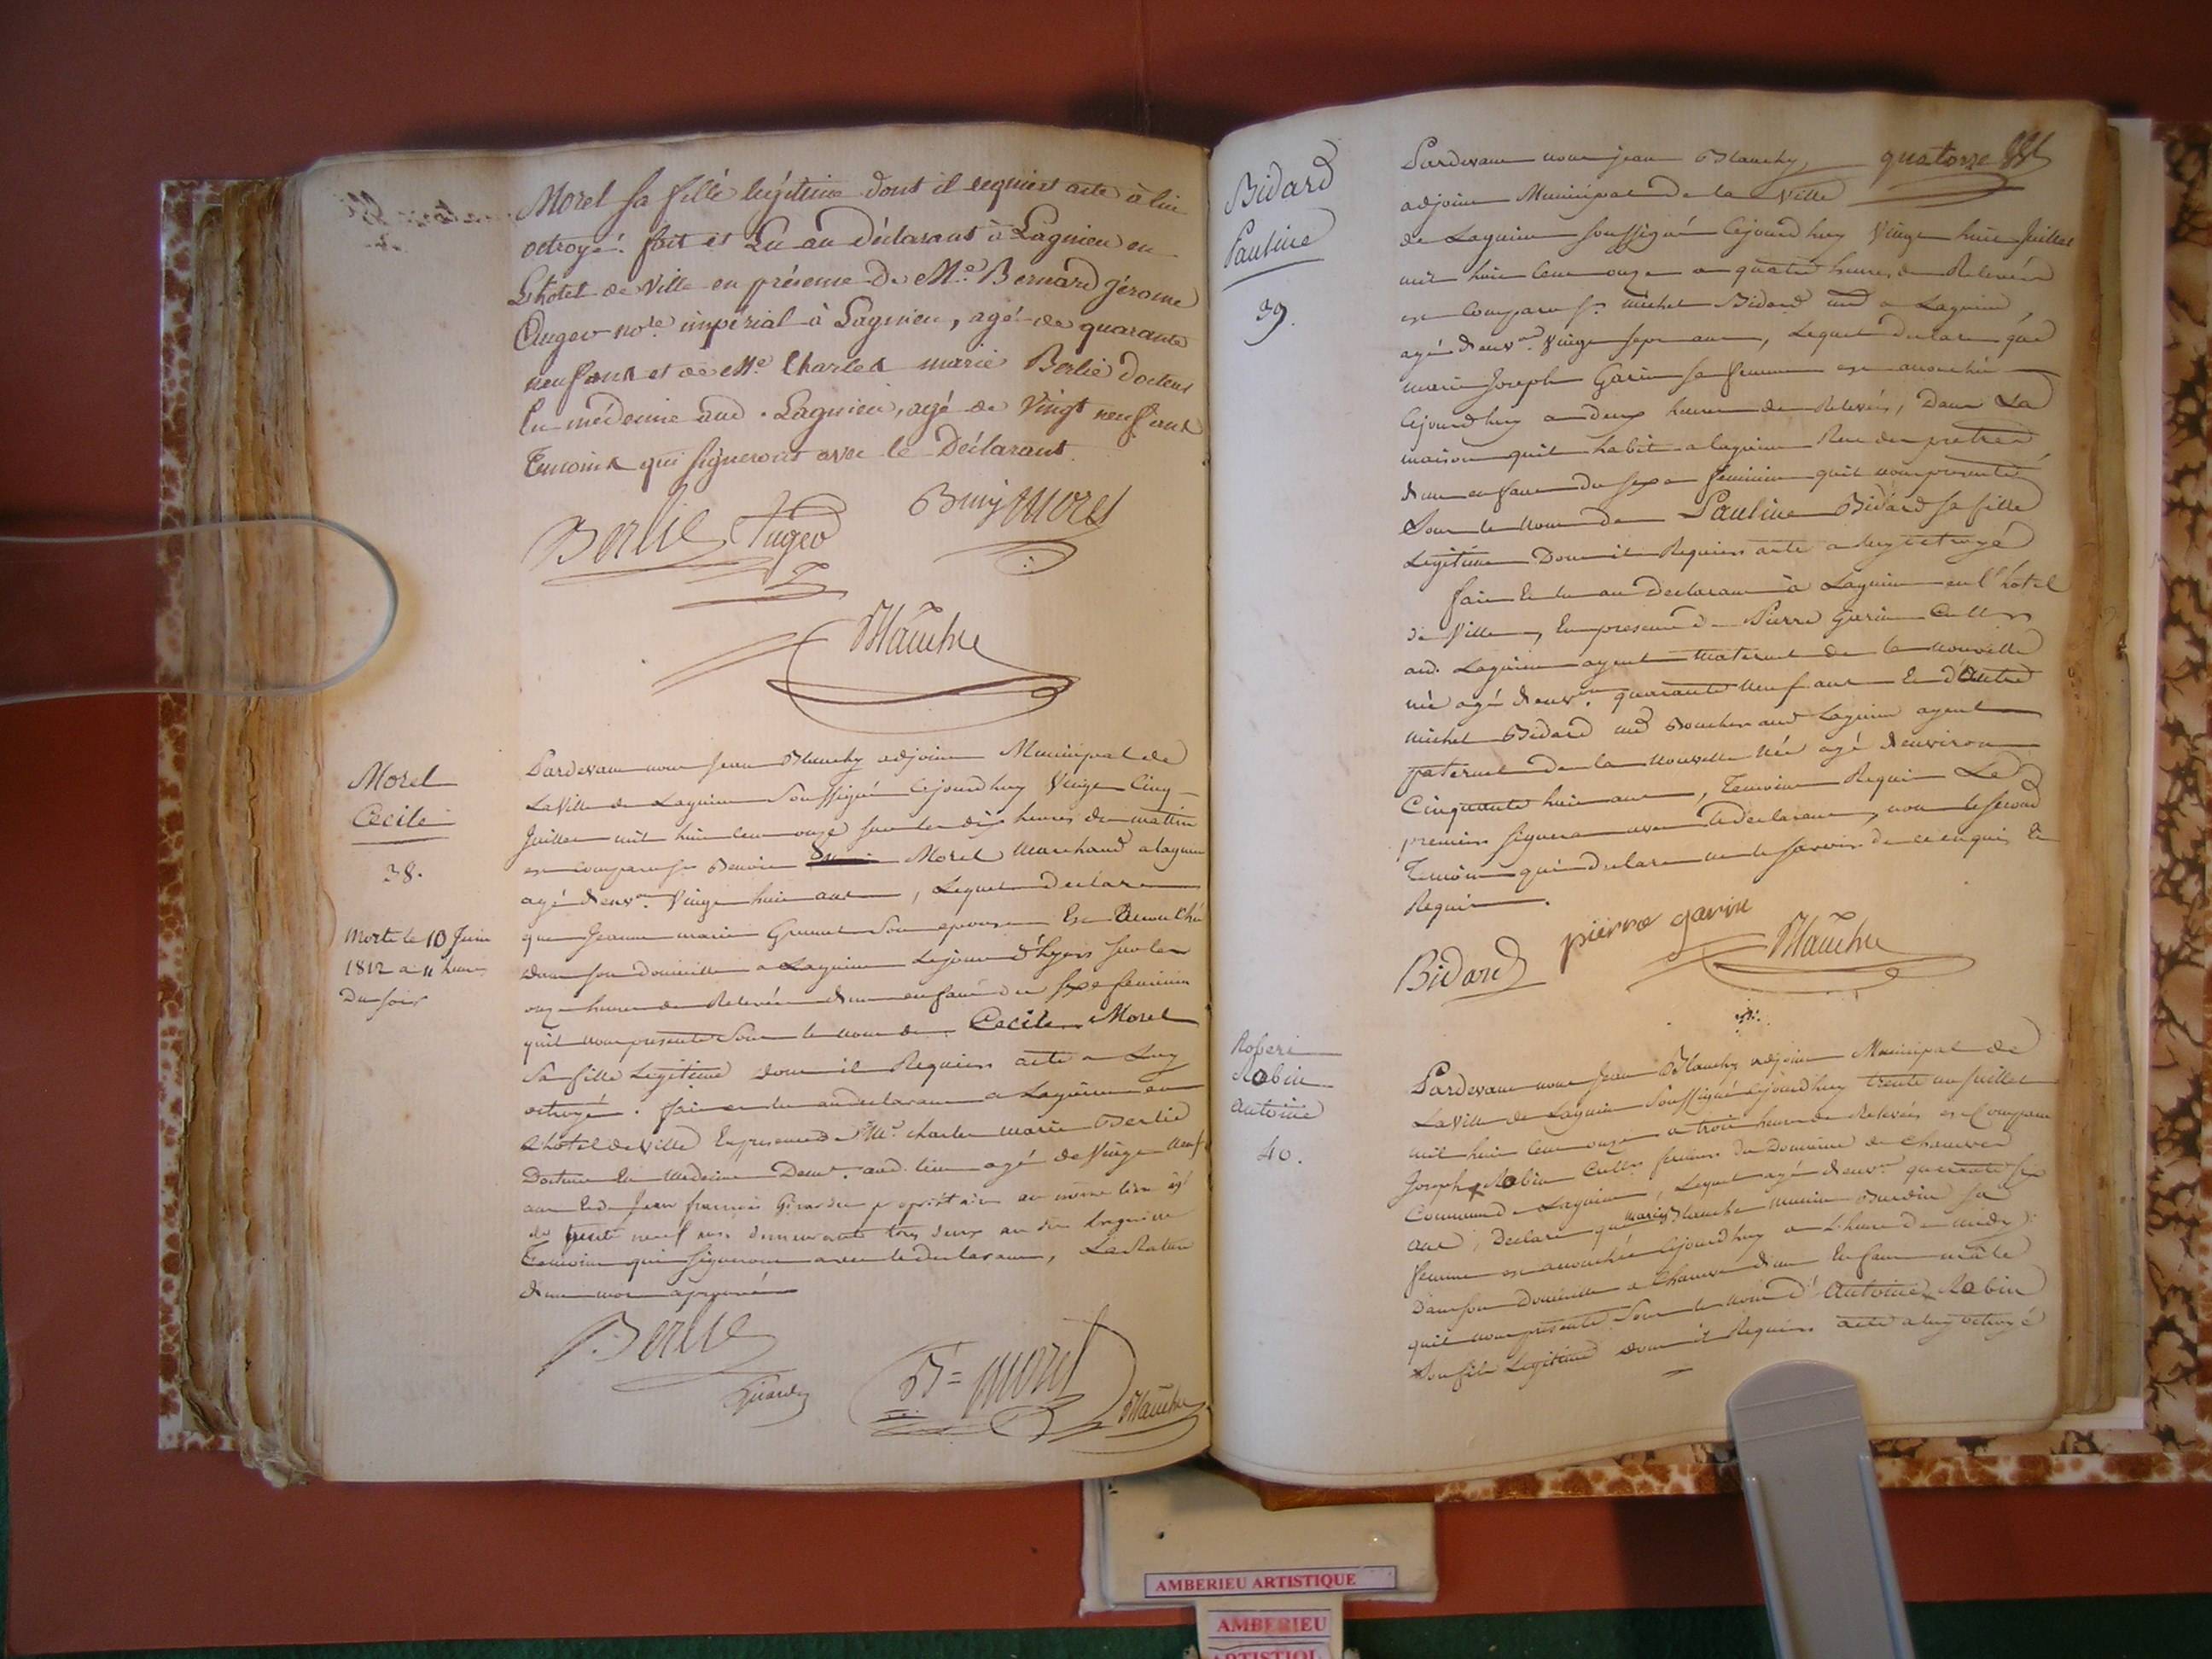 Morel sa fille légitime dont il requiert acte à lui
octroyé. fait et Lu au déclarant à Lagnieu en
L'hotel de Ville en présence de Me. Bernard Jérome
Auger nore. impérial à Lagnieu, agé de quarante
neuf ans et de Me. Charles marie Berlié docteur
En médecine aud. Lagnieu, agé de Vingt neuf ans
Temoins qui signeront avec le Déclarant.
Berlié Auger Morel
Blanchy
Morel
Cécile
38.
Morte le 10 Juin
1812 a 11 heures
Du soir
Pardevant nous Jean Blanchy adjoint Municipal de
La Ville de Lagnieu Soussigné Cejourdhuy Vingt Cinq
Juillet mil huit Cent onze sur les dix heures du mattin
est comparu sr. Benoit Morel Marchand a Lagnieu
agé d'env.on Vingt huit ans, Lequel declare
que Jeanne marie son epouse Est accouchée
dans son domicille a Lagnieu Lejour d'hyer sur les
onze heures de Relevée d'un enfant du sexe feminin
quil nous presente Sous le nom de Cecile Morel
Sa fille Legitime dont il Requiert acte a Luy
octroyé. fait et lu au declarant a Lagnieu en
L'hotel de Ville En presence de Me. charles marie Berlié
Docteur En Medecine Demt. aud. lieu agé de Vingt neuf
ans Et de Jean françois Girardin propriétaire au même lieu agé
de trente neuf ans demeurants tous deux au dit Lagnieu
Temoins qui signeront avec le declarant, La Rature
d'un mot approuvée
Berlié
Girardin Bt= Morel Blanchy
Bidard
Pauline
39.
Pardevant nous jean Blanchy quatorze
adjoint Municipal De la Ville
de Lagnieu soussigné Cejourdhuy Vingt huit Juillet
mil huit Cent onze a quatre heures de Relevée
est Comparu sr. michel Bidard md a Lagnieu,
agé d'env.on Vingt sept ans, Lequel declare que
marie Joseph Garin sa femme est accouchée
Cejourdhuy a deux heures de Relevée, Dans La
maison quil habite a lagnieu Rue des pretres
d'un enfant du sexe feminin quil nous presente
Sous le nom de Pauline Bidard sa fille
Legitime Dont il Requiert acte a luy octroyé
fait Et lu au Declarant à Lagnieu en l'hôtel
de Ville, En presence de Pierre Garin Cultr
aud. Lagnieu ayeul maternel de la nouvelle
née agé d'env.on quarante neuf ans Et d'Autre
michel Bidard md Boucher aud Lagnieu ayeul
paternel de la nouvelle née agé d'environ
Cinquante huit ans, Temoins Requis Le
premier signera avec le declarant, non le second
Temoin qui declare ne le savoir de ce enquis Et
Requis.
Bidard pierre garin Blanchy
Robin
Antoine
40.
Pardevant nous Jean Blanchy adjoint Municipal de
La Ville de Lagnieu Soussigné Cejourdhuy trente un Juillet
mil huit Cent onze a trois heures de Relevée est Comparu
Joseph Robin Cultr fermier du Domaine de
Commune de Lagnieu, Lequel agé d'env.on quarante six
ans, Declare que sa
femme est accouchée Cejourdhuy a L'heure de midy
Dans son Domicille a d'un Enfant mâle
quil nous presente Sous le nom d'Antoine Robin
Son fils Legitime dont il Requiert acte a luy octroyé
AMBERIEU ARTISTIQUE
AMBERIEU